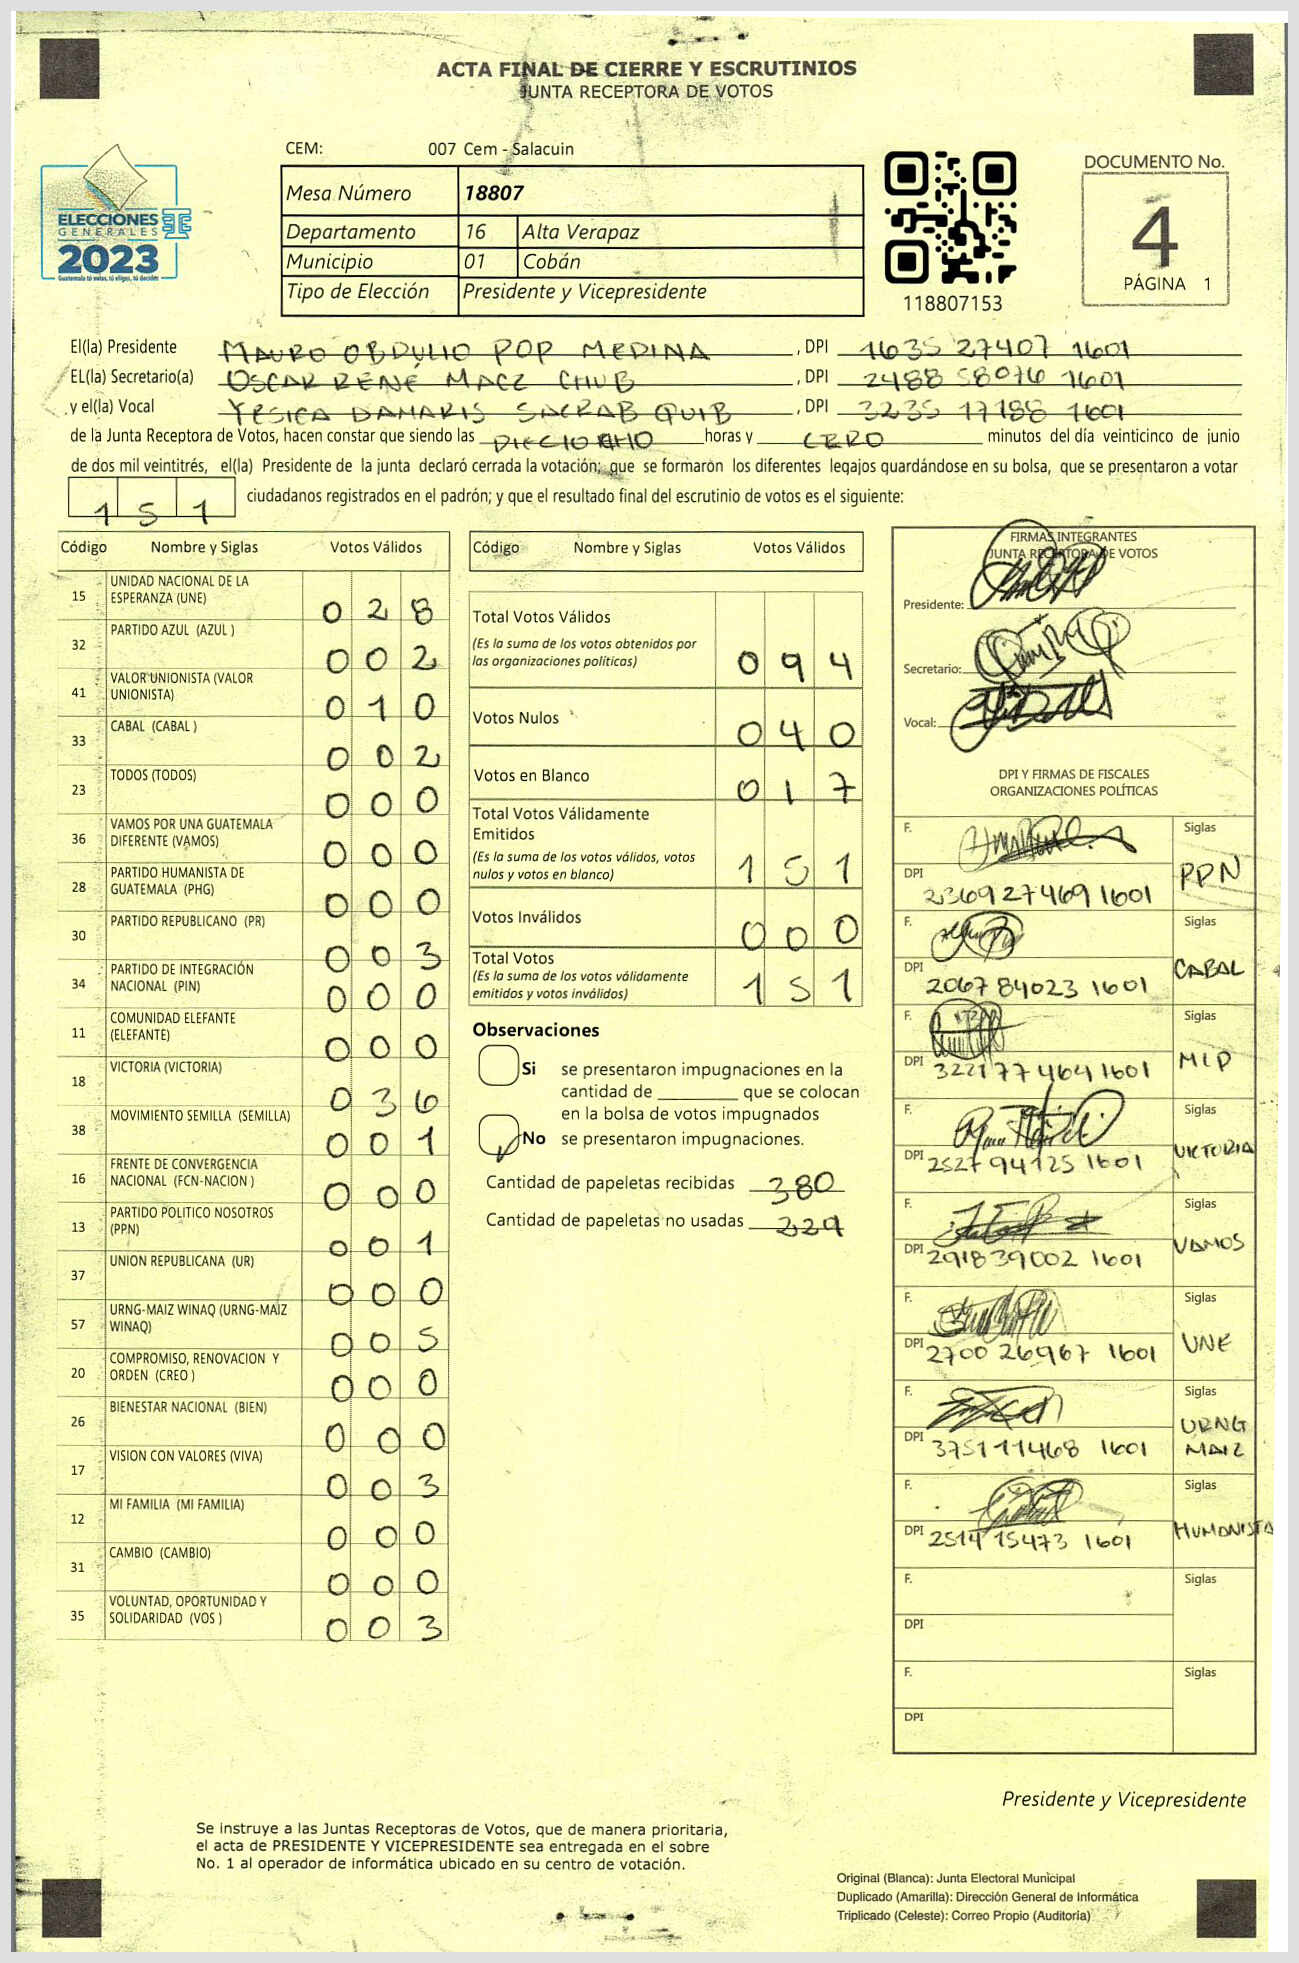 ACTA FINAL DE CIERRE Y ESCRUTINIOS
JUNTA RECEPTORA DE VOTOS
CEM: 007 Cem - Salacuin
Mesa Número 18807
Departamento 16 Alta Verapaz
Municipio 01 Cobán
Tipo de Elección Presidente y Vicepresidente
ELECCIONES
GENERALES
2023
Guatemala tú votas, tú eliges, tú decides
118807153
DOCUMENTO No.
4
PÁGINA 1
El(la) Presidente MAURO OBDULIO POP MEDINA , DPI 1635 27407 1601
EL(la) Secretario(a) OSCAR RENÉ MACZ CHUB , DPI 2488 58076 1601
y el(la) Vocal YESICA DAMARIS SACRAB QUIB , DPI 3235 17188 1601
de la Junta Receptora de Votos, hacen constar que siendo las DIECIOCHO horas y CERO minutos del día veinticinco de junio
de dos mil veintitrés, el(la) Presidente de la junta declaró cerrada la votación; que se formaron los diferentes legajos guardándose en su bolsa, que se presentaron a votar
151 ciudadanos registrados en el padrón; y que el resultado final del escrutinio de votos es el siguiente:
Código Nombre y Siglas Votos Válidos
15 UNIDAD NACIONAL DE LA ESPERANZA (UNE) 028
32 PARTIDO AZUL (AZUL ) 002
41 VALOR UNIONISTA (VALOR UNIONISTA) 010
33 CABAL (CABAL ) 002
23 TODOS (TODOS) 000
36 VAMOS POR UNA GUATEMALA DIFERENTE (VAMOS) 000
28 PARTIDO HUMANISTA DE GUATEMALA (PHG) 000
30 PARTIDO REPUBLICANO (PR) 003
34 PARTIDO DE INTEGRACIÓN NACIONAL (PIN) 000
11 COMUNIDAD ELEFANTE (ELEFANTE) 000
18 VICTORIA (VICTORIA) 036
38 MOVIMIENTO SEMILLA (SEMILLA) 001
16 FRENTE DE CONVERGENCIA NACIONAL (FCN-NACION ) 000
13 PARTIDO POLITICO NOSOTROS (PPN) 001
37 UNION REPUBLICANA (UR) 000
57 URNG-MAIZ WINAQ (URNG-MAIZ WINAQ) 005
20 COMPROMISO, RENOVACION Y ORDEN (CREO ) 000
26 BIENESTAR NACIONAL (BIEN) 000
17 VISION CON VALORES (VIVA) 003
12 MI FAMILIA (MI FAMILIA) 000
31 CAMBIO (CAMBIO) 000
35 VOLUNTAD, OPORTUNIDAD Y SOLIDARIDAD (VOS ) 003
Código Nombre y Siglas Votos Válidos
Total Votos Válidos
(Es la suma de los votos obtenidos por
las organizaciones políticas) 094
Votos Nulos 040
Votos en Blanco 017
Total Votos Válidamente
Emitidos
(Es la suma de los votos válidos, votos
nulos y votos en blanco) 151
Votos Inválidos 000
Total Votos
(Es la suma de los votos válidamente
emitidos y votos inválidos) 151
Observaciones
Si se presentaron impugnaciones en la
cantidad de ________ que se colocan
en la bolsa de votos impugnados
No se presentaron impugnaciones.
Cantidad de papeletas recibidas 380
Cantidad de papeletas no usadas 229
FIRMAS INTEGRANTES
JUNTA RECEPTORA DE VOTOS
Presidente:
Secretario:
Vocal:
DPI Y FIRMAS DE FISCALES
ORGANIZACIONES POLÍTICAS
F. Siglas
DPI 2369 27469 1601 PPN
F. Siglas
DPI 2067 84023 1601 CABAL
F. Siglas
DPI 3221 77464 1601 MLP
F. Siglas
DPI 2527 94125 1601 VICTORIA
F. Siglas
DPI 2918 39002 1601 VAMOS
F. Siglas
DPI 2700 26967 1601 UNE
F. Siglas
DPI 3751 11468 1601 URNG MAIZ
F. Siglas
DPI 2514 15473 1601 HUMANISTA
F. Siglas
DPI
F. Siglas
DPI
Presidente y Vicepresidente
Se instruye a las Juntas Receptoras de Votos, que de manera prioritaria,
el acta de PRESIDENTE Y VICEPRESIDENTE sea entregada en el sobre
No. 1 al operador de informática ubicado en su centro de votación.
Original (Blanca): Junta Electoral Municipal
Duplicado (Amarilla): Dirección General de Informática
Triplicado (Celeste): Correo Propio (Auditoría)